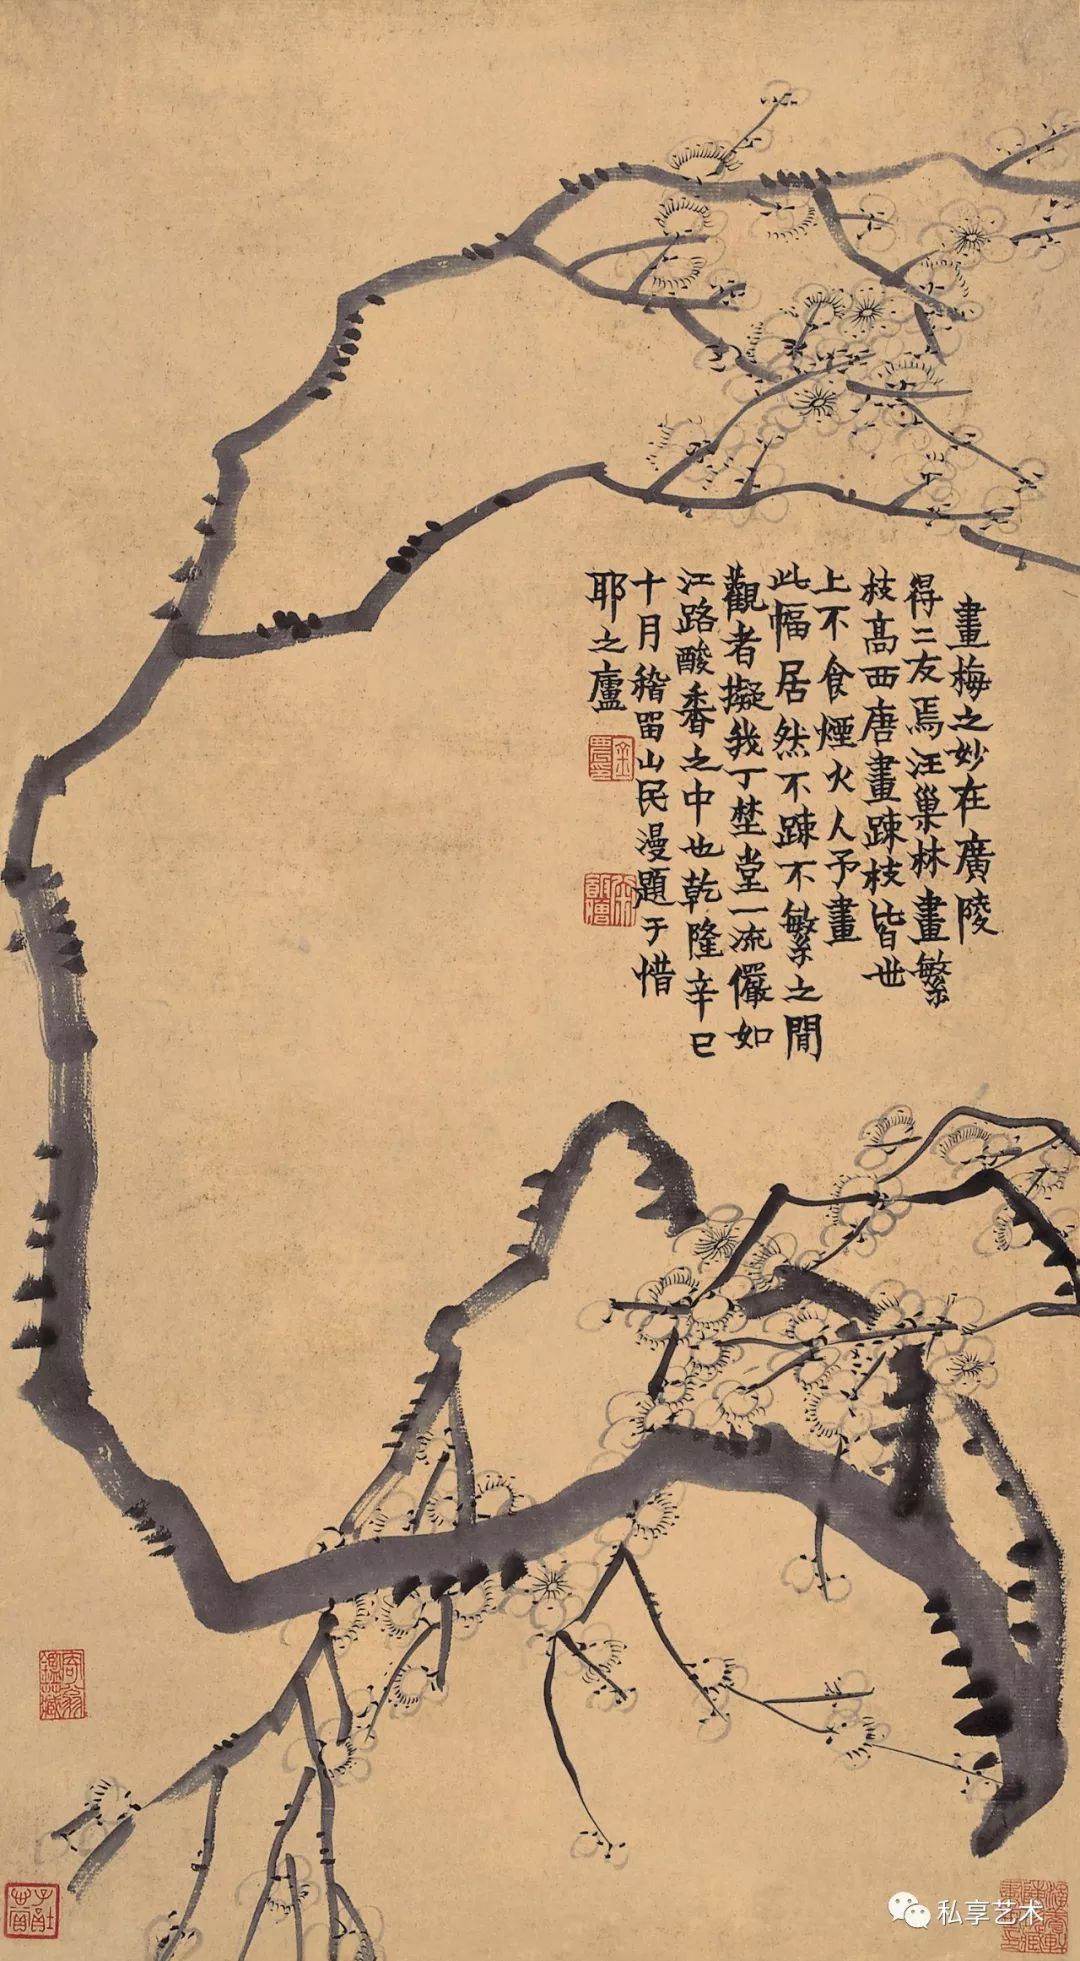 畫梅之妙在廣陵
得二友焉汪巢林畫繁
枝高西唐畫踈枝皆世
上不食煙火人予畫
此幅居然不踈不繁之間
觀者擬我丁埜堂一流儼如
江路酸香之中也乾隆辛巳
十月稽留山民漫題于惜
耶之廬
私享艺术